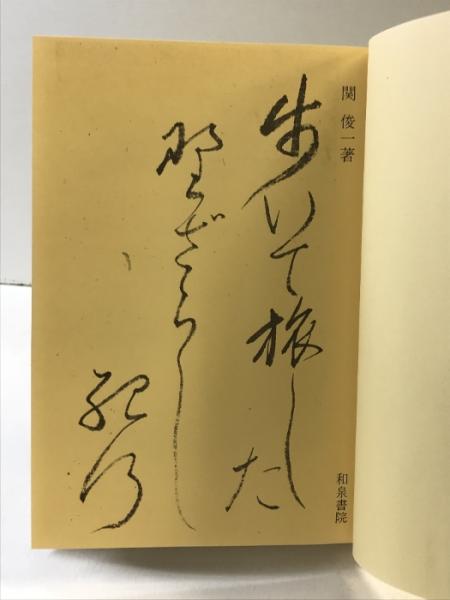 関 俊一著
歩いて旅した
野ざらし
紀行
和泉書院